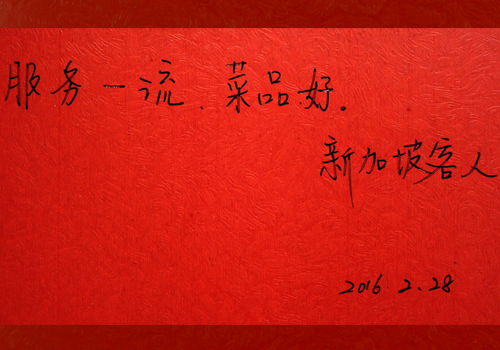 服务一流、菜品好。
新加坡客人
2016.2.28